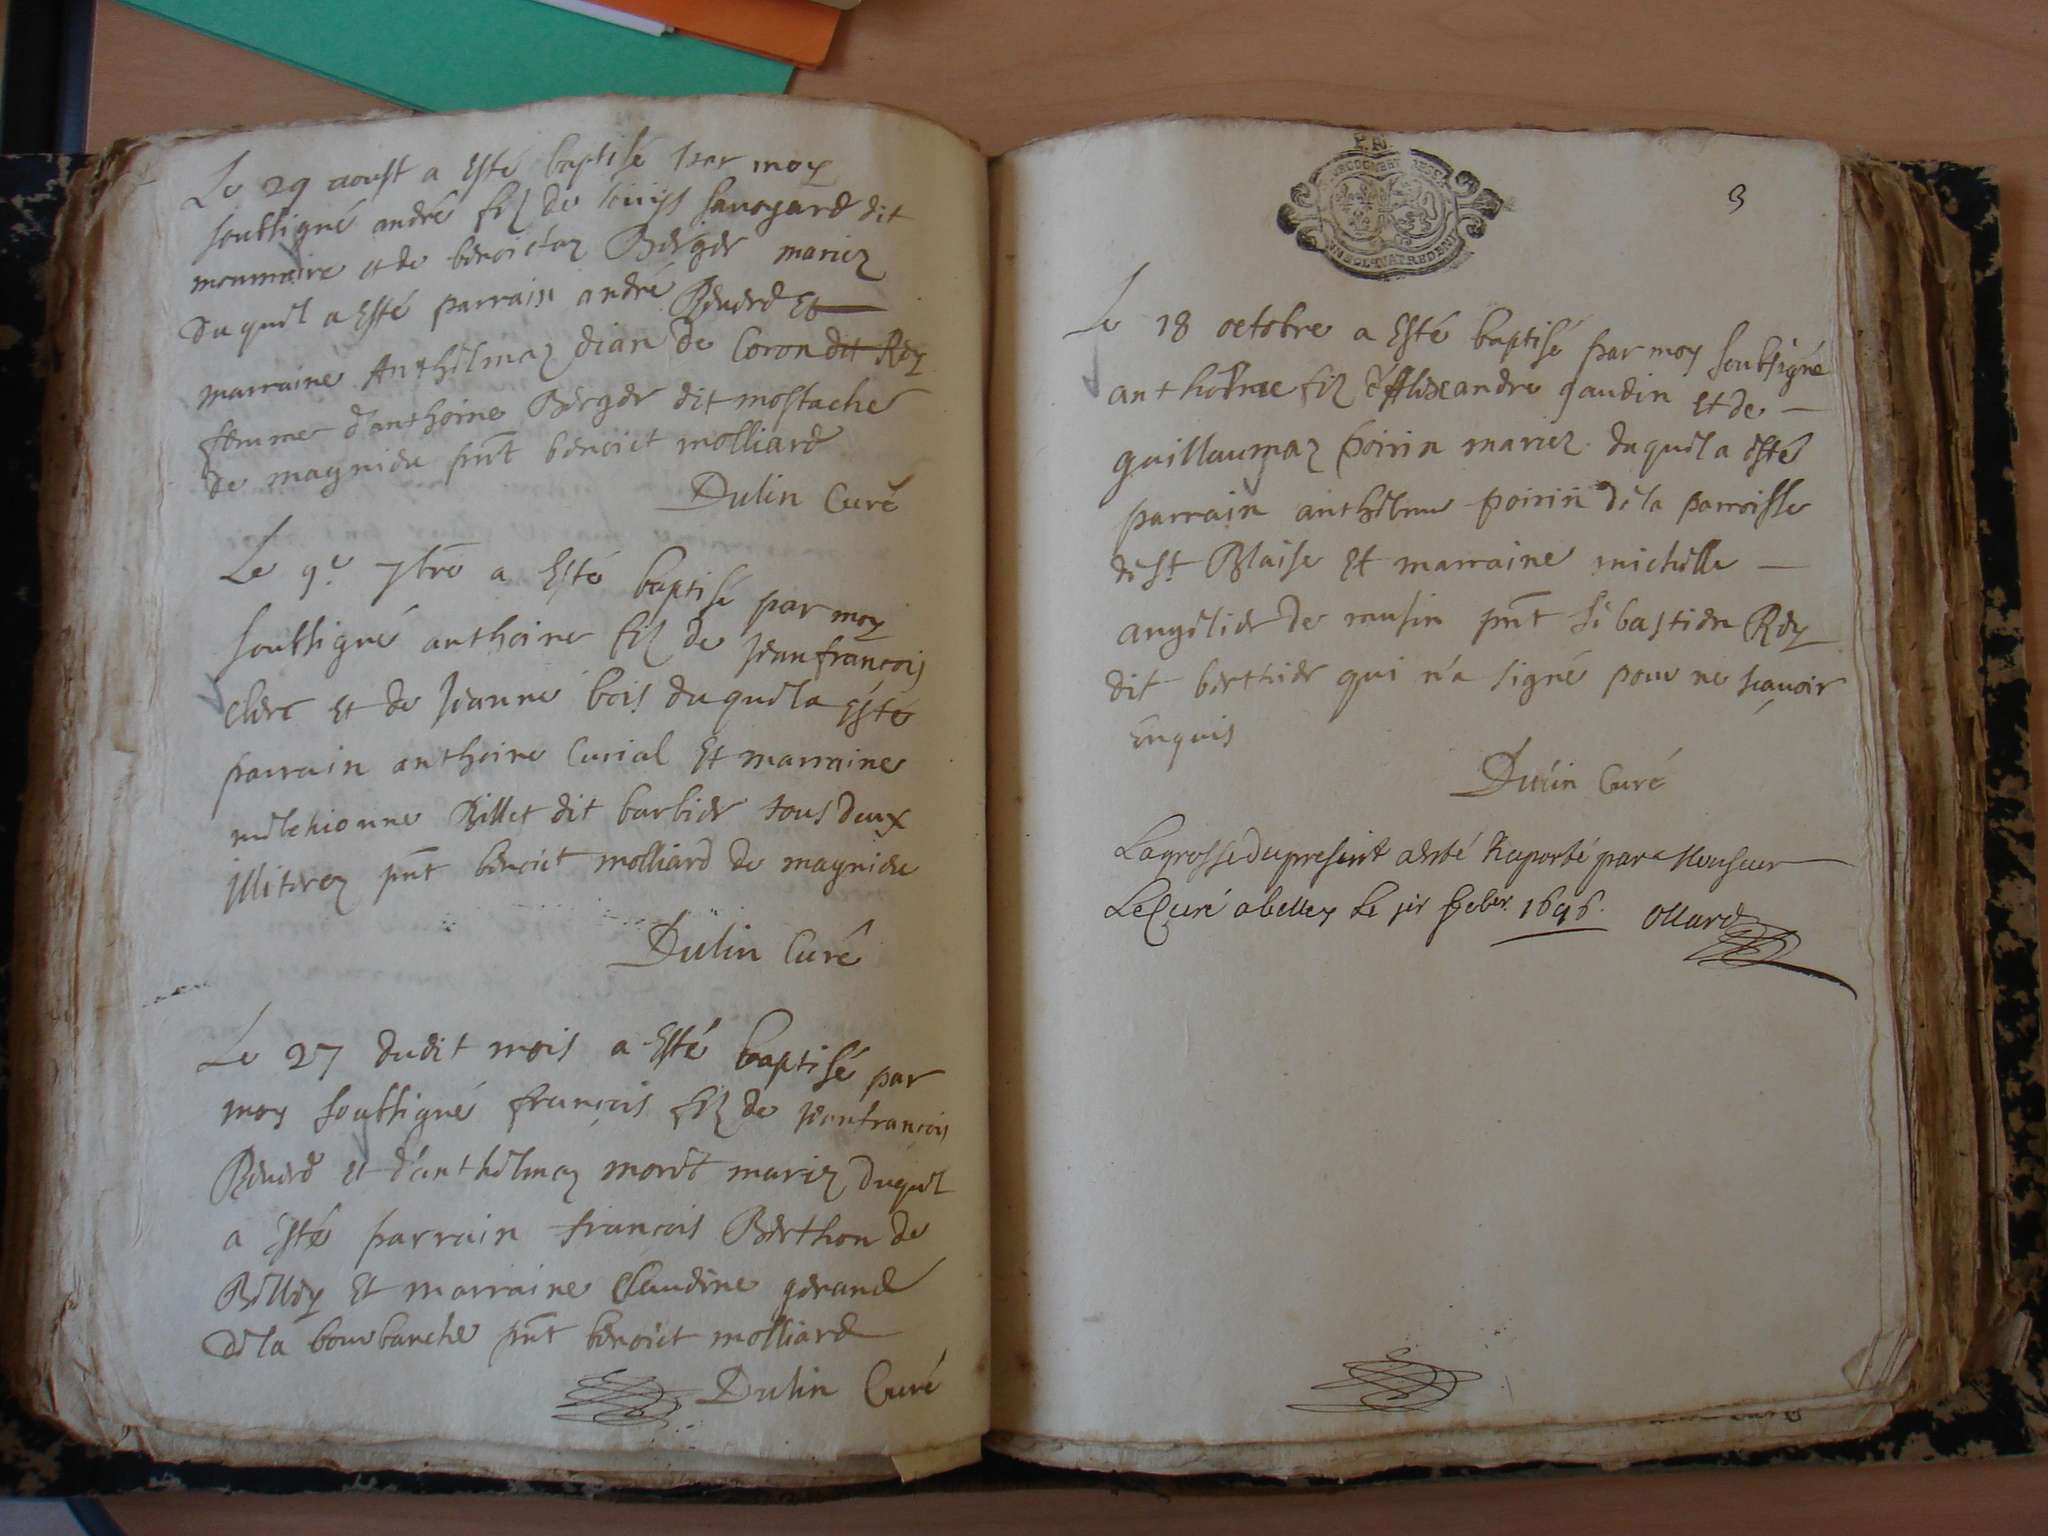 Le 29 aoust a Esté baptisé par moy
soubsigné andré filz de louys Sauoyard dit
monmaire et de benoictaz Berger mariez
Duquel a Esté parrain andré Reuerd Et
marraine Anthelmaz dian de Coron dit Rey
femme d'anthoine Berger dit mostache
de magnieu pnt benoict molliard
Dulin Curé
Le 9e 7bre a Esté baptisé par moy
soubsigné anthoine filz de Jeanfrançois
clerc Et de Jeanne bois duquel a Esté
parrain anthoine Curial Et marraine
melchionne Billet dit barbier tous deux
Illiterez pnt benoict molliard de magnieu
Dulin Curé
Le 27 dudit mois a Esté baptisé par
moy soubsigné françois filz de Jeanfrançois
Reuerd Et d'anthelmaz moret mariez Duquel
a Esté parrain françois Berthon de
Billey Et marraine Claudine gerand
de la bourbanche pnt benoict molliard
Dulin Curé
3
Le 18 octobre a Esté baptisé par moy soubsigné
anthoine filz d'Alexandre gaudin Et de
guillaumaz poirin mariez duquel a Esté
parrain anthelme poirin de la parroisse
de St Blaise Et marraine michelle
angelier de musin pnt sebastien Rey
dit berthier qui n'a signé pour ne scauoir
Enquis
Dulin Curé
La grosse du present a esté Raporté par Monsieur
Le Curé a belley Le 1er 1696. Ollard